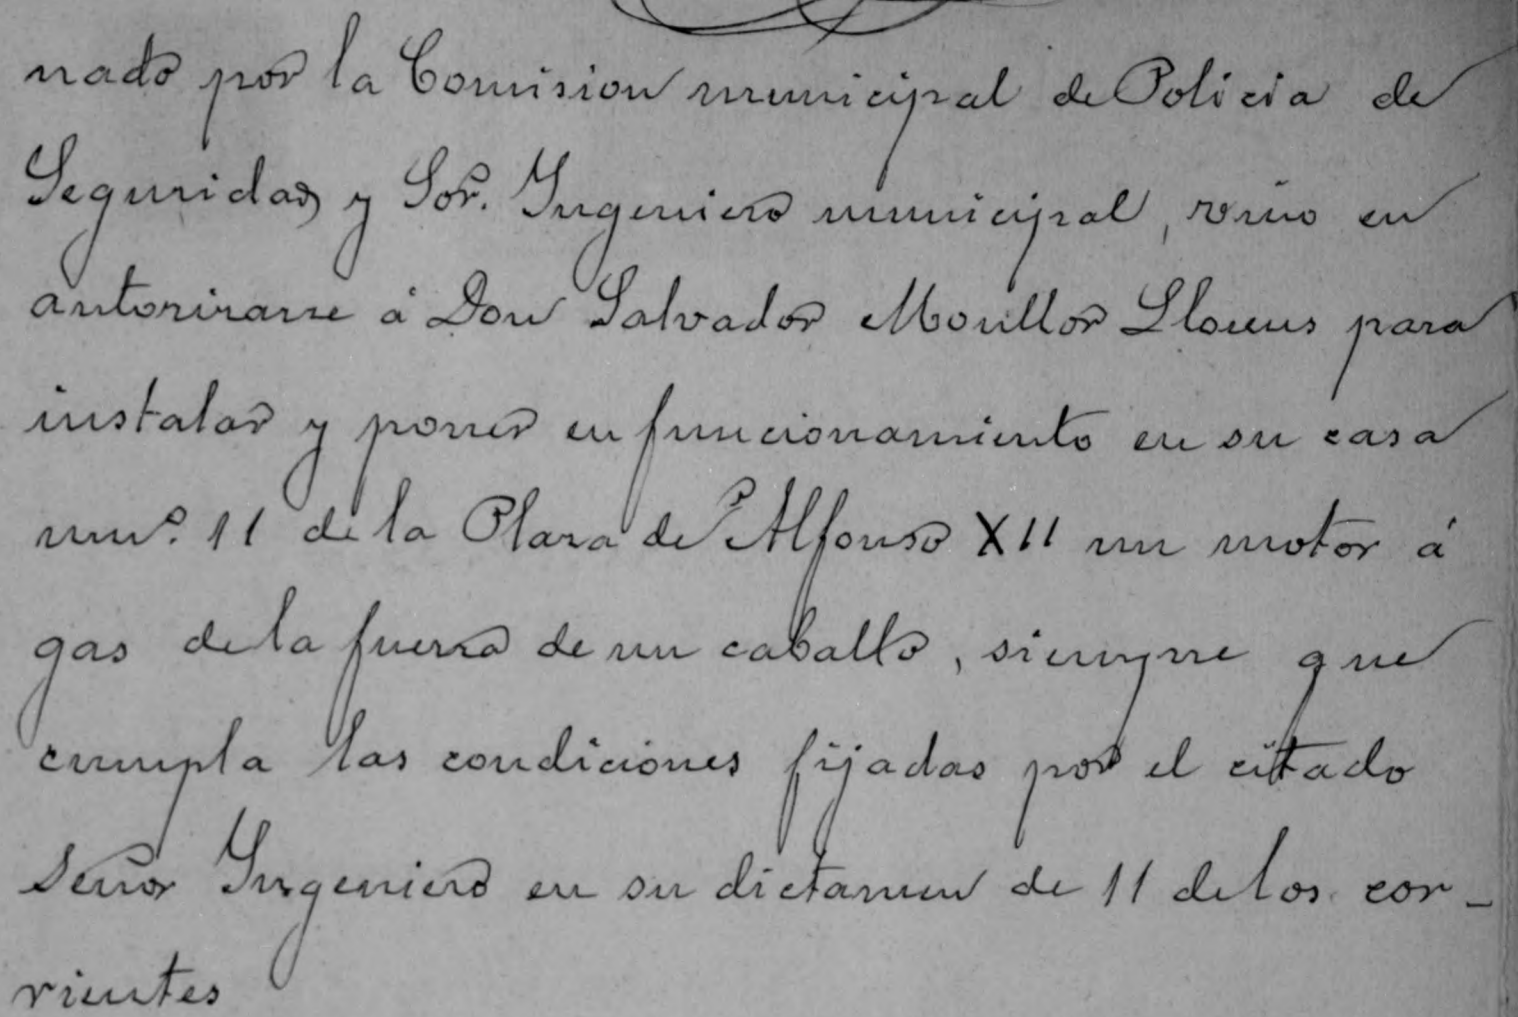 nado por la Comision municipal de Policia de
Seguridad y Sor. Ingeniero municipal, vino en
autorizarse á Don Salvador Monllor Llorens para
instalar y poner en funcionamiento en su casa
num.º 11 de la Plaza de Alfonso XII un motor á
gas de la fuerza de un caballo, siempre que
cumpla las condiciones fijadas por el citado
Señor Ingeniero en su dictamen de 11 de los cor-
rientes